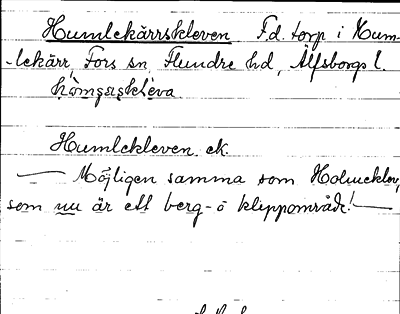 Humlekärrskleven F.d. torp i Hum-
-lekärr, Fors sn, Flundre hd, Älfsborgs l.
Humlekleven. ek.
— Möjligen samma som Holmeklev,
som nu är ett berg- o klippområde! —